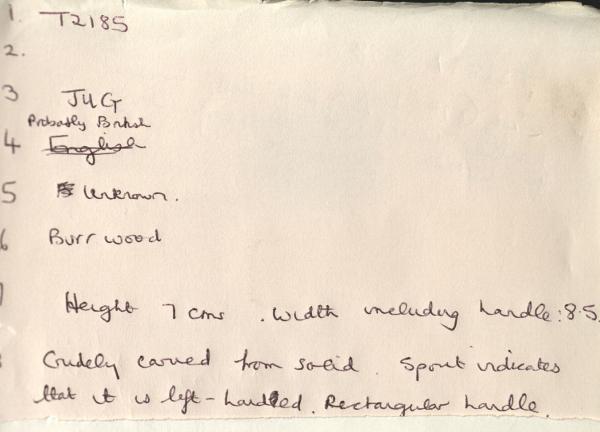 1. T2185
2.
3 JUG
Probably British
4 English
5 Unknown.
6 Burr wood
Height 7 cms . Width including handle: 8.5
Crudely carved from solid. Spout indicates
that it is left-handled. Rectangular handle.